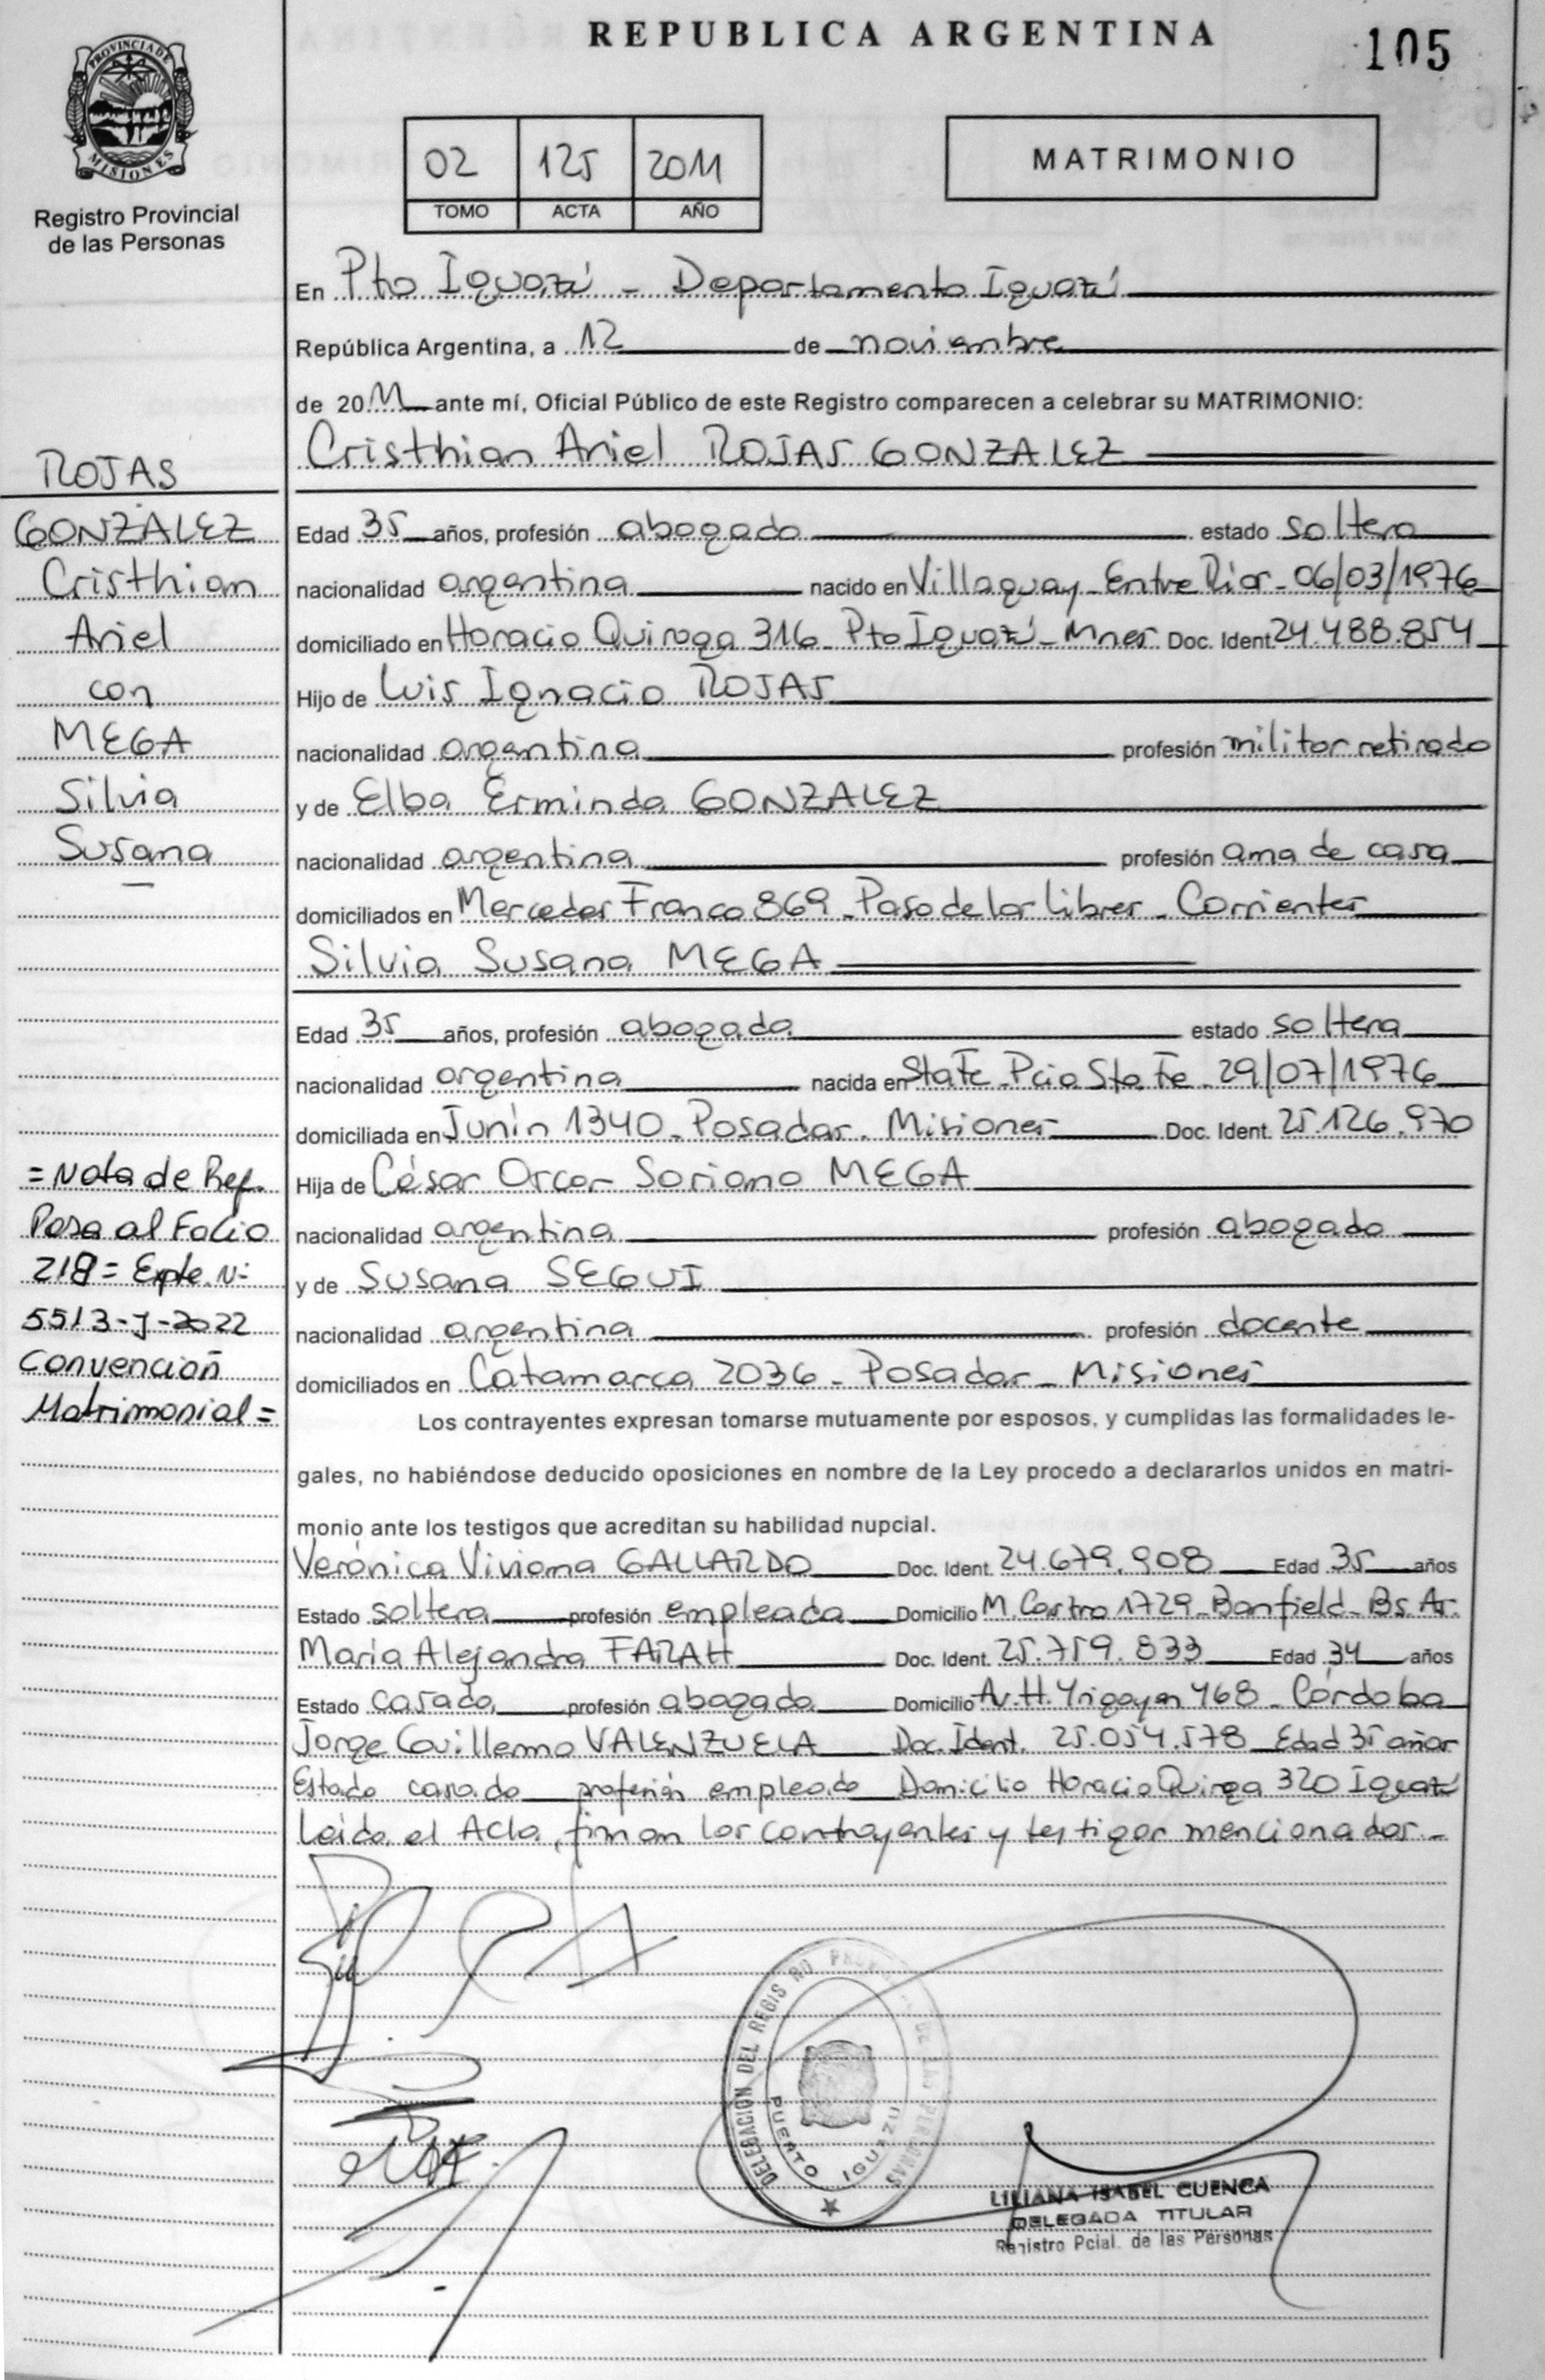 REPUBLICA ARGENTINA
105
PROVINCIA DE
MISIONES
Registro Provincial
de las Personas
02 125 2011
TOMO ACTA AÑO
MATRIMONIO
En Pto Iguazú - Departamento Iguazú
República Argentina, a 12 de noviembre
de 2011 ante mí, Oficial Público de este Registro comparecen a celebrar su MATRIMONIO:
Cristhian Ariel ROJAS GONZALEZ
Edad 35 años, profesión abogado estado soltero
nacionalidad argentina nacido en Villaguay - Entre Ríos - 06/03/1976
domiciliado en Horacio Quiroga 316 - Pto Iguazú - Mnes Doc. Ident. 24.488.854
Hijo de Luis Ignacio ROJAS
nacionalidad argentina profesión militar retirado
y de Elba Erminda GONZALEZ
nacionalidad argentina profesión ama de casa
domiciliados en Mercedes Franco 869 - Paso de los Libres - Corrientes
Silvia Susana MEGA
Edad 35 años, profesión abogada estado soltera
nacionalidad argentina nacida en Sta Fe - Pcia Sta Fe - 29/07/1976
domiciliada en Junín 1340 - Posadas - Misiones Doc. Ident. 25.126.970
Hija de César Oscar Soriano MEGA
nacionalidad argentina profesión abogado
y de Susana SEGUI
nacionalidad argentina profesión docente
domiciliados en Catamarca 2036 - Posadas - Misiones
Los contrayentes expresan tomarse mutuamente por esposos, y cumplidas las formalidades le-
gales, no habiéndose deducido oposiciones en nombre de la Ley procedo a declararlos unidos en matri-
monio ante los testigos que acreditan su habilidad nupcial.
Verónica Viviana GALLARDO Doc. Ident. 24.679.908 Edad 35 años
Estado soltera profesión empleada Domicilio M. Castro 1729 - Banfield - Bs As.
María Alejandra FARAH Doc. Ident. 25.759.833 Edad 34 años
Estado casada profesión abogada Domicilio Av. H. Yrigoyen 468 - Córdoba
Jorge Guillermo VALENZUELA Doc. Ident. 25.054.578 Edad 35 años
Estado casado profesión empleado Domicilio Horacio Quiroga 320 Iguazú
Leída el Acta, firman los contrayentes y testigos mencionados.-
ROJAS
GONZÁLEZ
Cristhian
Ariel
con
MEGA
Silvia
Susana
= Nota de Ref.
Pasa al Folio
218 = Expte. N:
5513-J-2022
Convención
Matrimonial =
DELEGACION DEL REGISTRO PROVINCIAL DE LAS PERSONAS
PUERTO IGUAZU
LILIANA ISABEL CUENCA
DELEGADA TITULAR
Registro Pcial. de las Personas